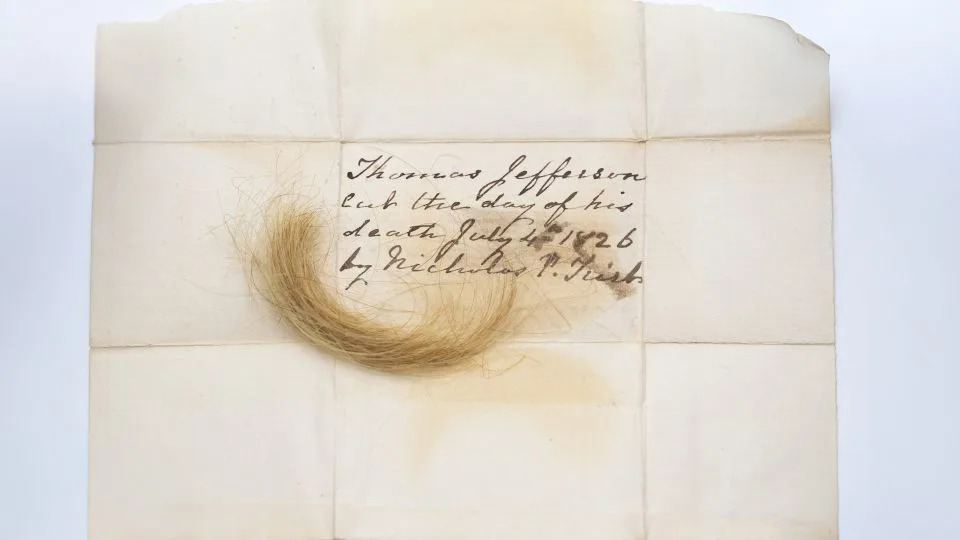 Thomas Jefferson
cut the day of his
death July 4th 1826
by Nicholas P. Trist